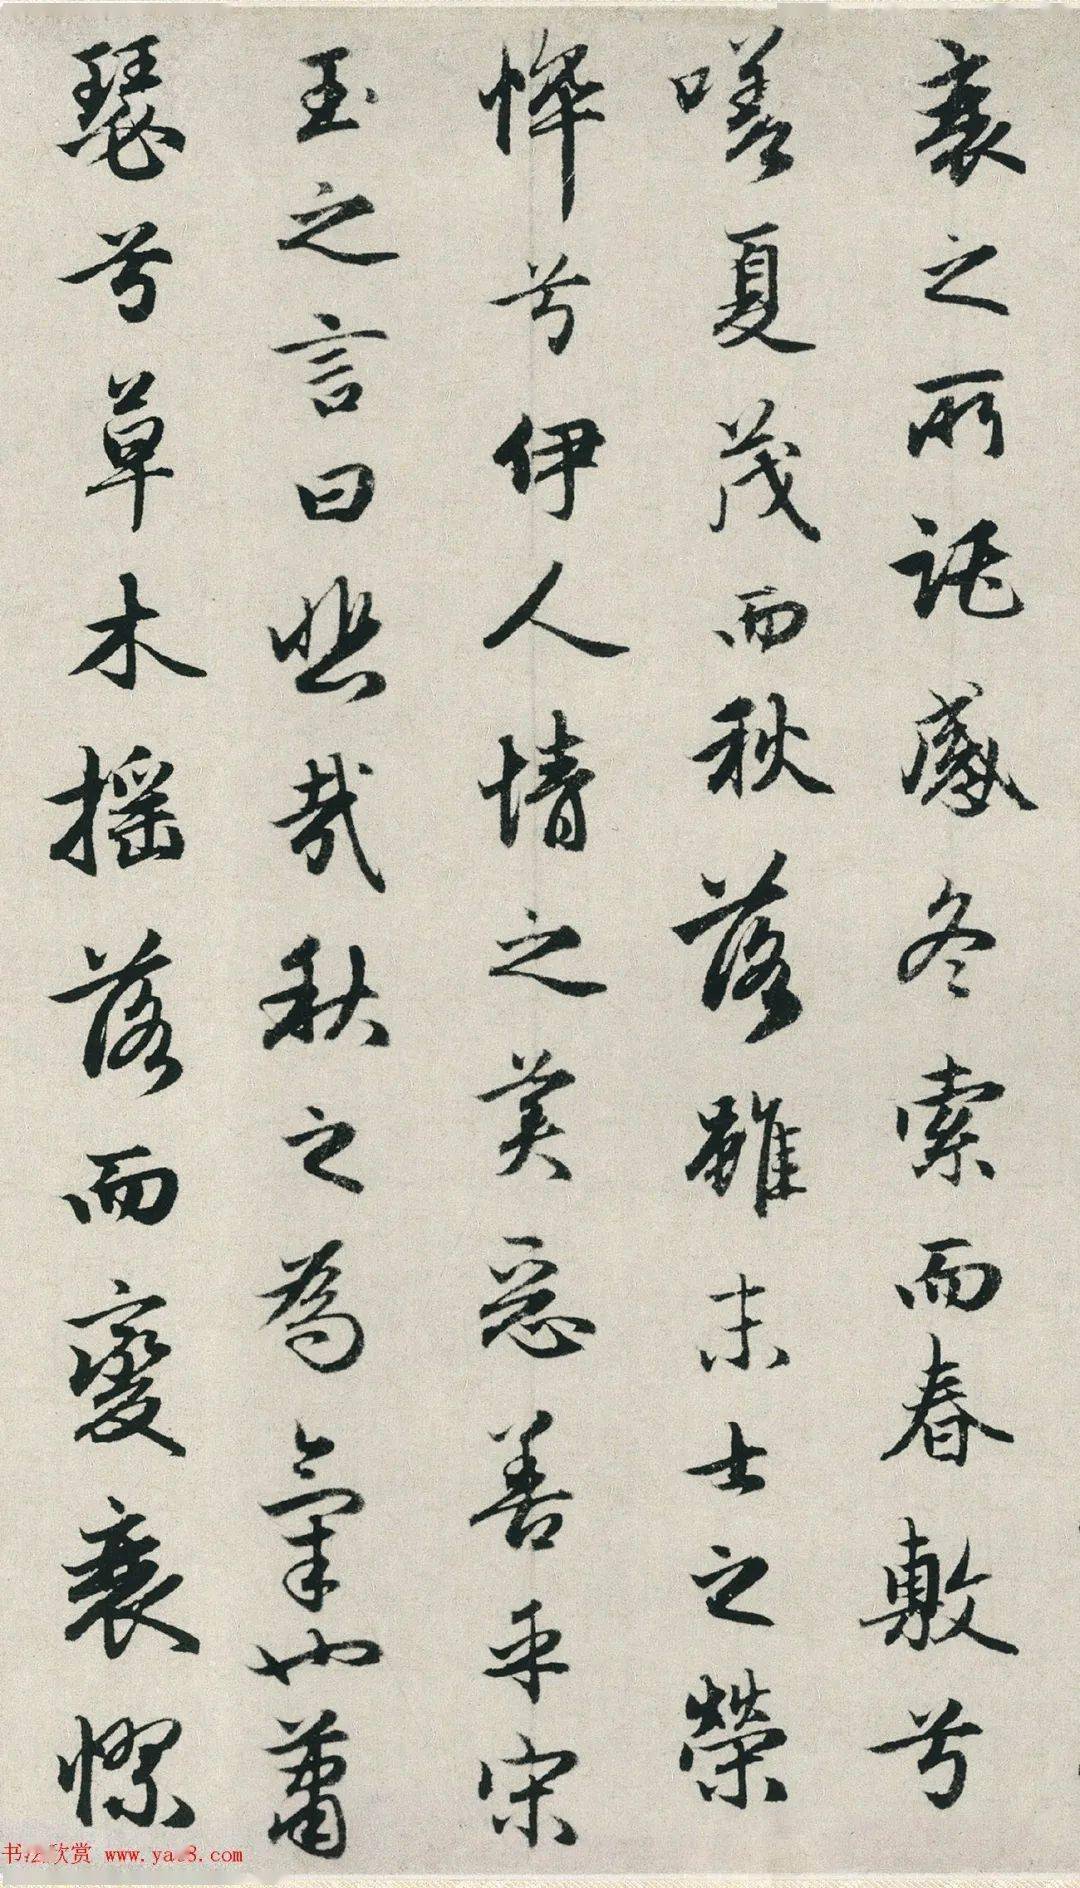 衰之所託感冬索而春敷兮
嗟夏茂而秋落雖末士之榮
悴兮伊人情之美惡善乎宋
玉之言曰悲哉秋之為氣也蕭
瑟兮草木搖落而變衰憭